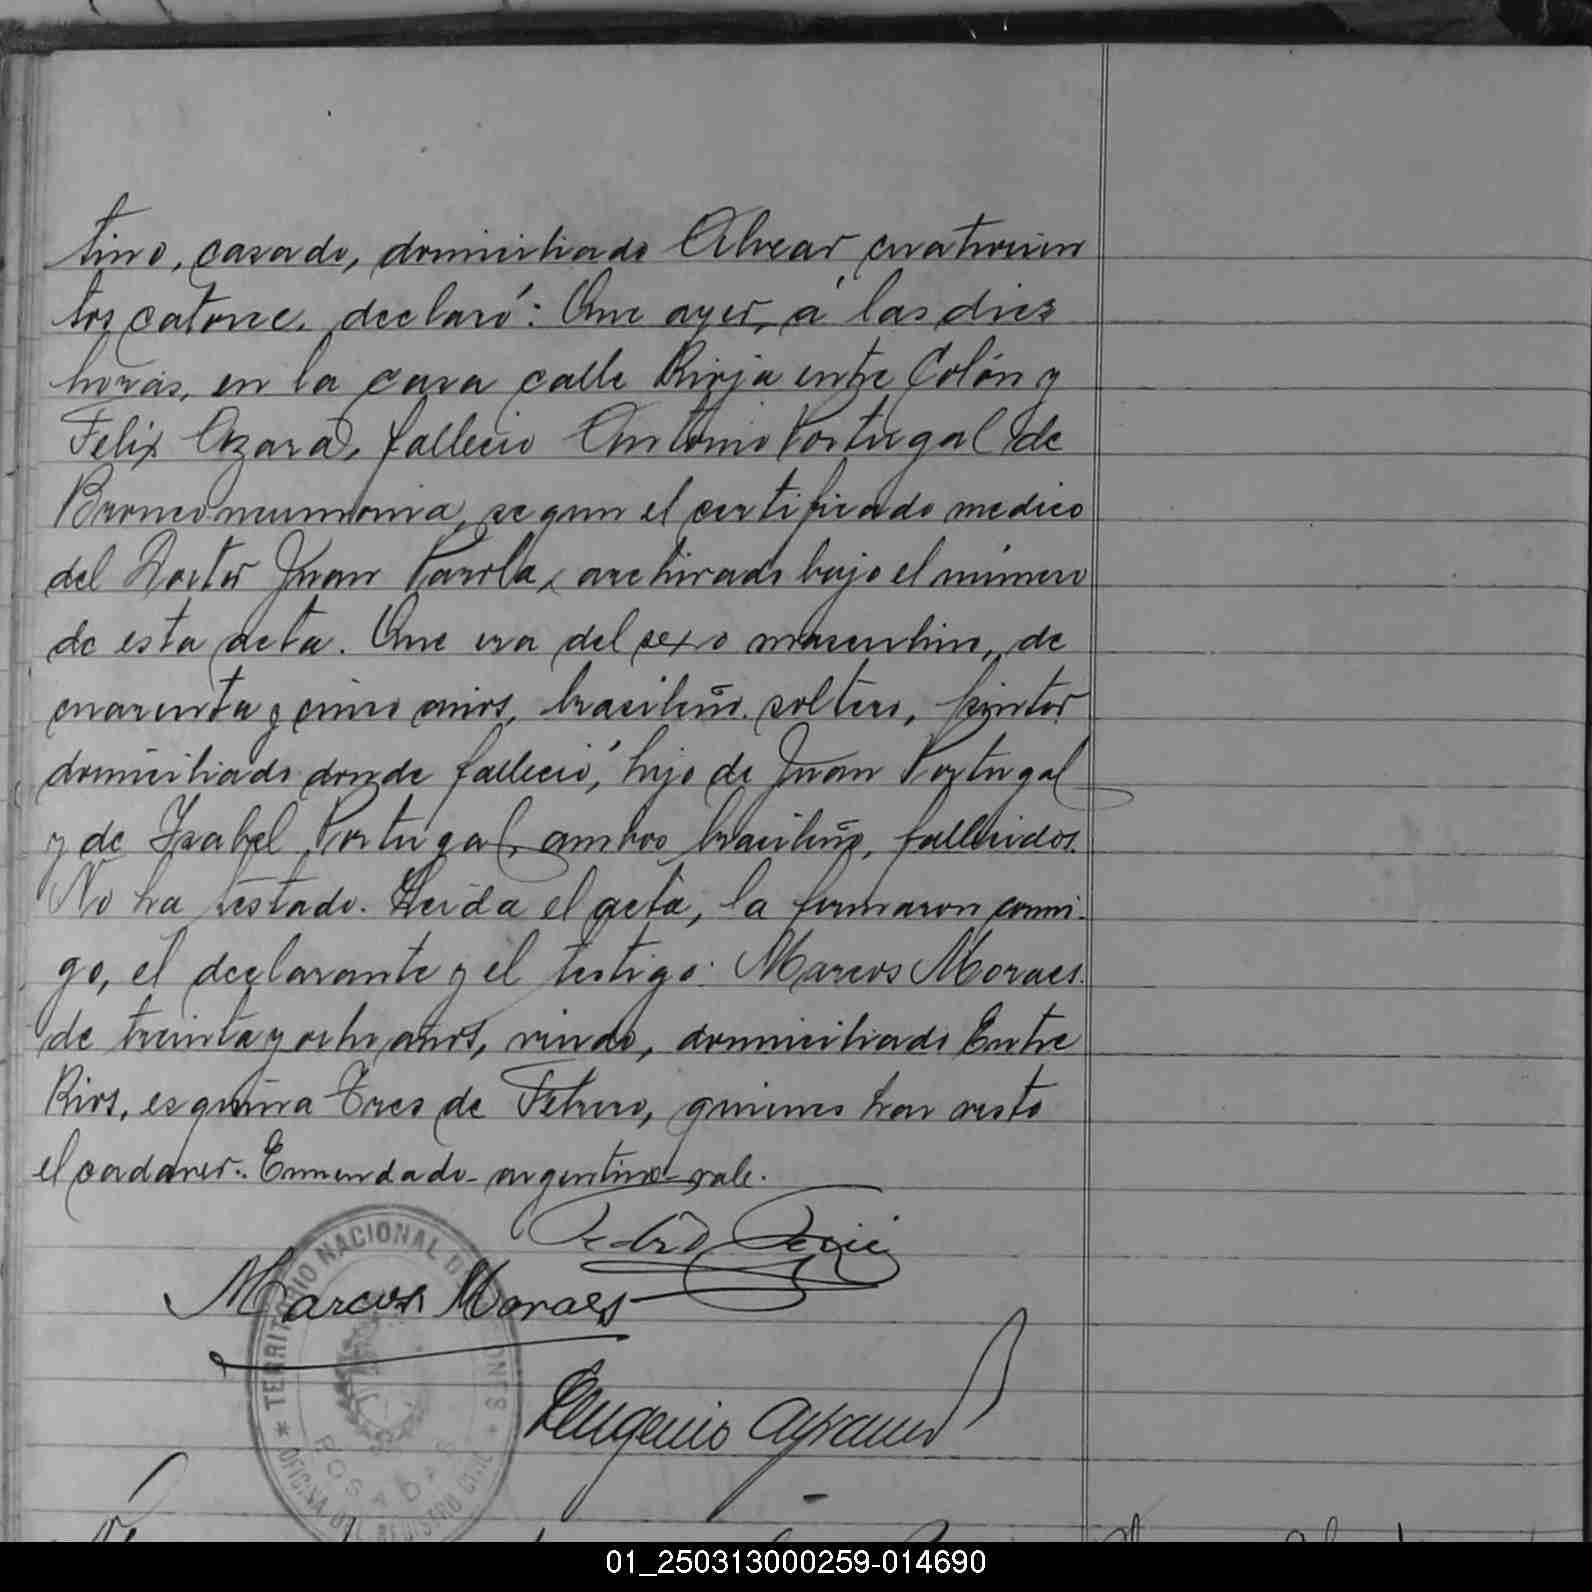 tino, casado, domiciliado Alvear cuatrocien
tos catorce, declaró: Que ayer, á las diez
horas, en la casa calle Rioja entre Colón y
Felix Azara, falleció Antonio Portugal de
Bronconeumonia, segun el certificado medico
del Doctor Juan Parola, archivado bajo el número
de esta acta. Que era del sexo masculino, de
cuarenta y cinco años, brasileño, soltero, pintor,
domiciliado donde falleció, hijo de Juan Portugal
y de Isabel Portugal, ambos brasileños, fallecidos.
No ha testado. Leída el acta, la firmaron conmi-
go, el declarante y el testigo: Marcos Moraes.
de treinta y ocho años, viudo, domiciliado Entre
Rios, esquina Tres de Febrero, quienes han visto
el cadaver.- Enmendado- argentino- vale.
Pedro
Marcos Moraes
Eugenio
TERRITORIO NACIONAL DE
OFICINA DEL REGISTRO CIVIL
POSADAS
01_250313000259-014690